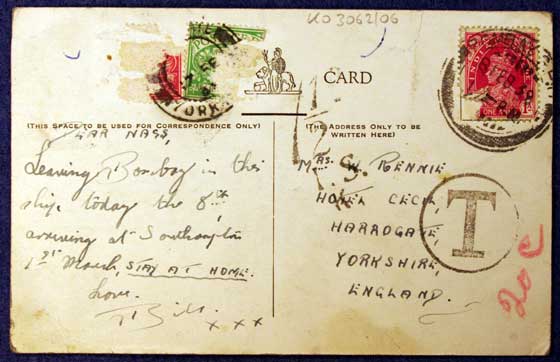 KO 3062/06
CARD
(THIS SPACE TO BE USED FOR CORRESPONDENCE ONLY)
(THE ADDRESS ONLY TO BE
WRITTEN HERE)
Leaving Bombay in this
ship today the 8th
arriving at Southampton
1st March, STAY AT HOME.
Love
Bill
x x x
MRS. W. RENNIE
HOTEL CECIL,
HARROGATE,
YORKSHIRE,
ENGLAND.
T
20c
YORK